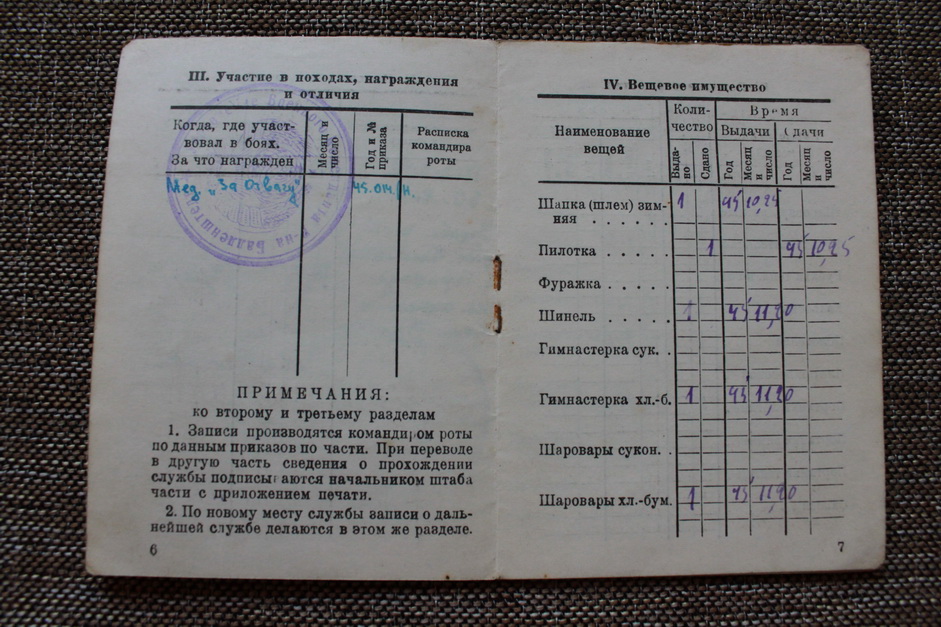 III. Участие в походах, награждения
и отличия
Когда, где участ-
вовал в боях.
За что награжден
Месяц и
число
Год и №
приказа
Расписка
командира
роты
Мед. „За Отвагу"
45.
ПРИМЕЧАНИЯ:
ко второму и третьему разделам
1. Записи производятся командиром роты
по данным приказов по части. При переводе
в другую часть сведения о прохождении
службы подписываются начальником штаба
части с приложением печати.
2. По новому месту службы записи о даль-
нейшей службе делаются в этом же разделе.
6
IV. Вещевое имущество
Наименование
вещей
Коли-
чество
Время
Выдачи Сдачи
Выда-
но
Сдано
Год
Месяц
и
число
Год
Месяц
и
число
Шапка (шлем) зим-
няя . . . . . 1 45 10,25
Пилотка . . . . . 1 45 10,25
Фуражка . . . . .
Шинель . . . . . 1 45 11,20
Гимнастерка сук. .
Гимнастерка хл.-б. 1 45 11,20
Шаровары сукон. .
Шаровары хл.-бум. 1 45 11,20
7